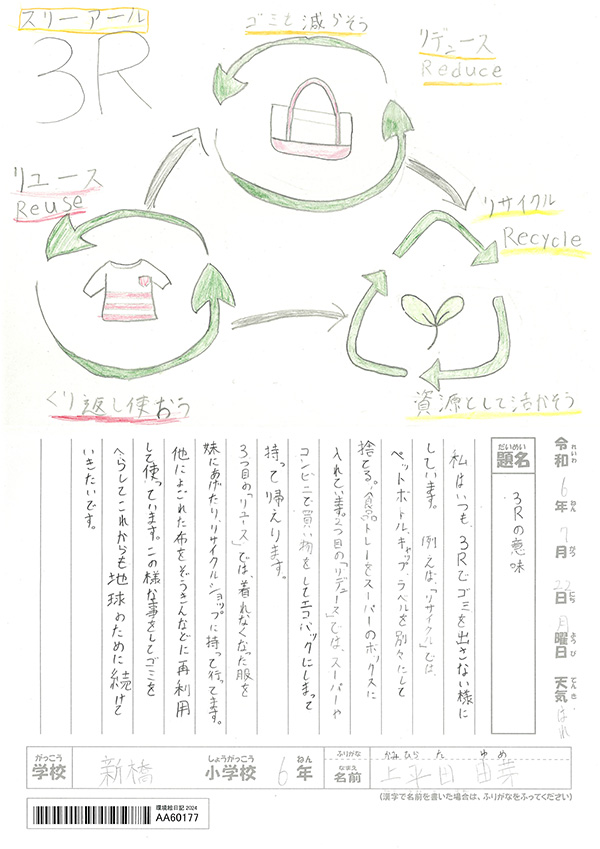 スリーアール
3R
ゴミを減らそう
リデュース
Reduce
リユース
Reuse
リサイクル
Recycle
くり返し使おう
資源として活かそう
令和6年7月22日月曜日 天気 はれ
れいわ ねん がつ にち ようび てんき
だいめい
題名
3Rの意味
私はいつも、3Rでゴミを出さない様に
しています。 例えば、「リサイクル」では、
ペットボトル、キャップ ラベルを別々にして
捨てる。食品トレーをスーパーのボックスに
入れています。2つ目の「リデュース」では、スーパーや
コンビニで買い物をしてエコバックにしまって
持って帰えります。
3つ目の「リユース」では、着れなくなった服を
妹にあげたり、リサイクルショップに持って行ってます。
他によごれた布をぞうきんなどに再利用
して使っています。この様な事をしてゴミを
へらしてこれからも地球のために続けて
いきたいです。
がっこう
学校
新橋
しょうがっこう
小学校
6
ねん
年
ふりがな
なまえ
名前
かみひらた ゆめ
上平田
(漢字で名前を書いた場合は、ふりがなをふってください)
環境絵日記2024
AA60177